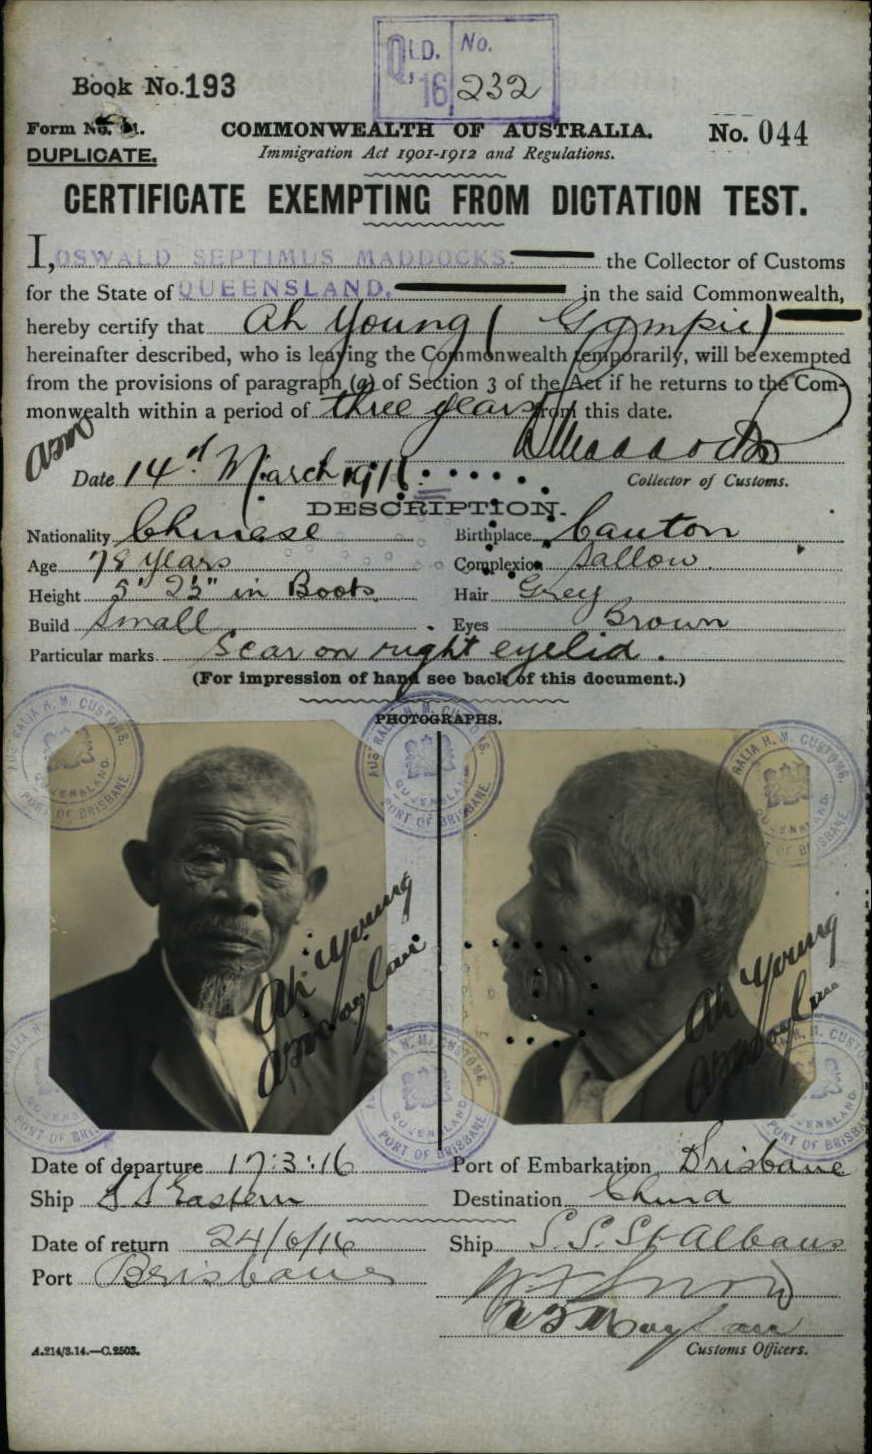 QLD. No.
'16 232
Book No. 193
Form No. 21.
COMMONWEALTH OF AUSTRALIA.
No. 044
DUPLICATE.
Immigration Act 1901-1912 and Regulations.
CERTIFICATE EXEMPTING FROM DICTATION TEST.
I, OSWALD SEPTIMUS MADDOCKS. the Collector of Customs
for the State of QUEENSLAND. in the said Commonwealth,
hereby certify that Ah Young (Gympie)
hereinafter described, who is leaving the Commonwealth temporarily, will be exempted
from the provisions of paragraph (a) of Section 3 of the Act if he returns to the Com-
monwealth within a period of three years from this date.
Maddocks
Date 14th March 1916
Collector of Customs.
DESCRIPTION.
Nationality Chinese Birthplace Canton
Age 78 years Complexion Sallow.
Height 5' 2½" in Boots Hair Grey
Build Small Eyes Brown
Particular marks Scar on right eyelid.
(For impression of hand see back of this document.)
PHOTOGRAPHS.
AUSTRALIA H. M. CUSTOMS. QUEENSLAND. PORT OF BRISBANE
Ah Young
Ah Young
Date of departure 17:3:16 Port of Embarkation Brisbane
Ship SS Eastern Destination China
Date of return 24/6/16 Ship S.S. St Albans
Port Brisbane
A.214/3.14.—C.2503.
Customs Officers.